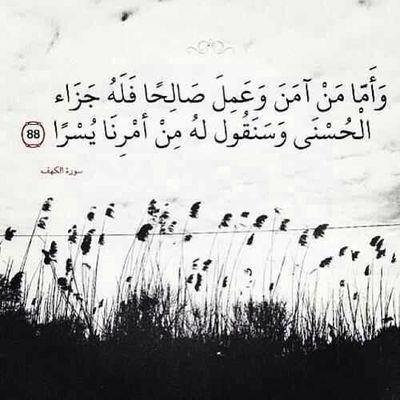 وَأَمَّا مَنْ آمَنَ وَعَمِلَ صَالِحًا فَلَهُ جَزَاء
الْحُسْنَى وَسَنَقُول لهُ مِنْ أمْرِنَا يُسْرًا 88
سورة الكهف